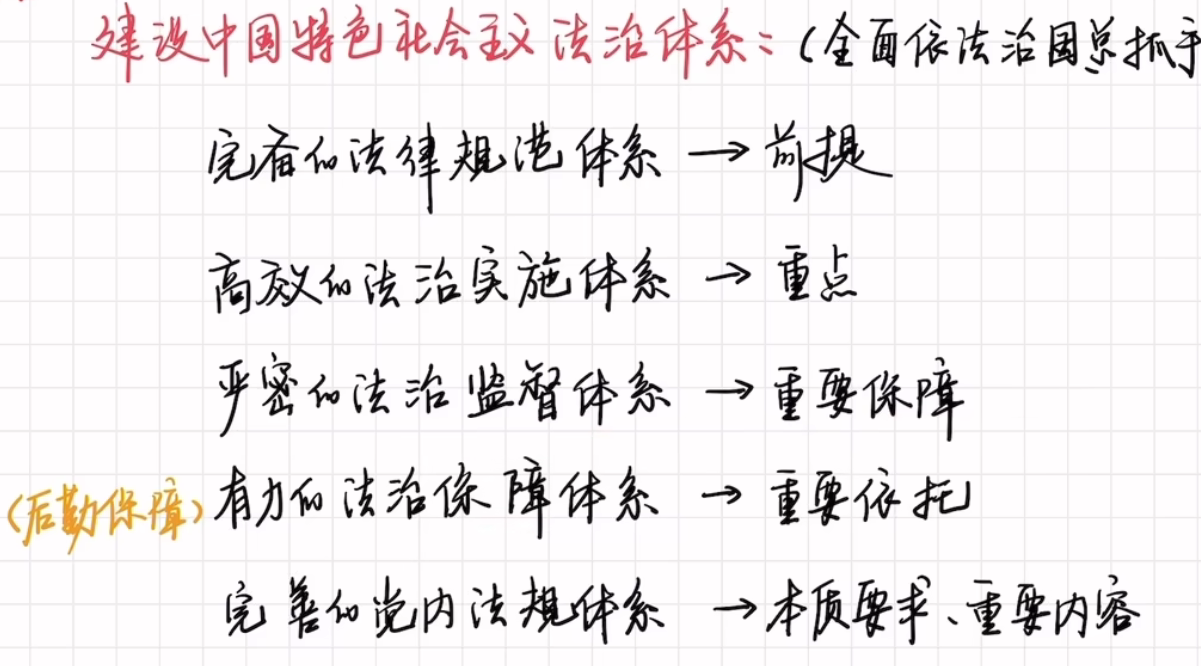 建设中国特色社会主义法治体系：（全面依法治国总抓手
完备的法律规范体系 → 前提
高效的法治实施体系 → 重点
严密的法治监督体系 → 重要保障
（后勤保障）有力的法治保障体系 → 重要依托
完善的党内法规体系 → 本质要求、重要内容